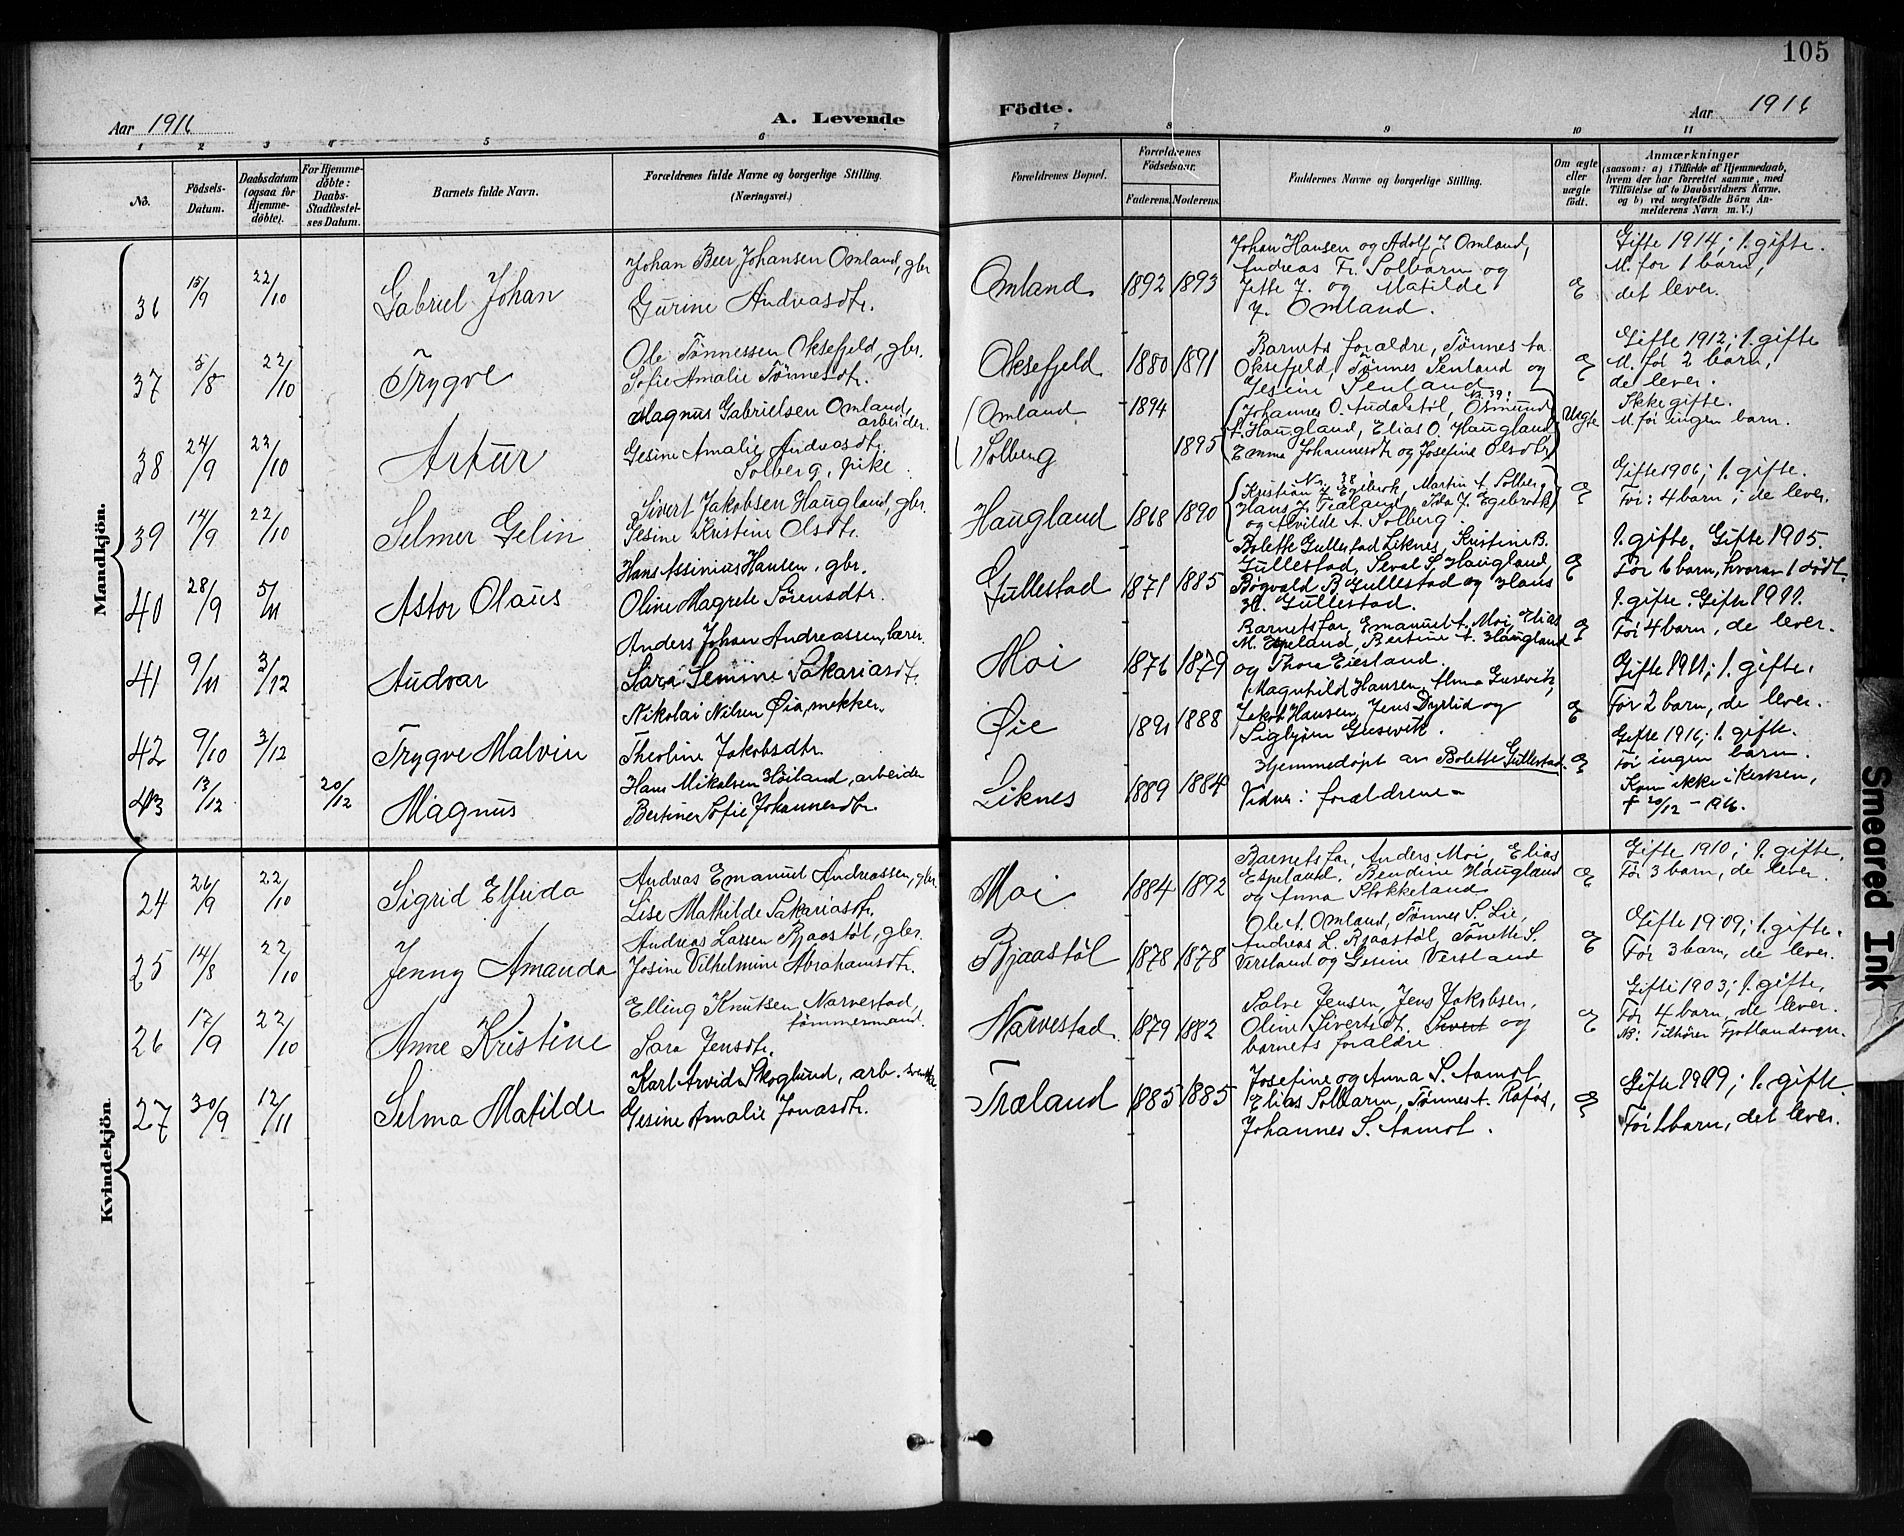 105
Aar 1916
A. Levende
Födte.
Aar 1916
1 2 3 4 5 6 7 8 9 10 11
No.
Födsels-
Datum.
Daabsdatum
(ogsaa for
Hjemme-
döbte).
For Hjemme-
döbte:
Daabs-
Stadfæstel-
ses Datum.
Barnets fulde Navn.
Forældrenes fulde Navne og borgerlige Stilling.
(Næringsvei.)
Forældrenes Bopæl.
Forældrenes
Födselsaar.
Faderens. Moderens.
Faddernes Navne og borgerlige Stilling.
Om ægte
eller
uægte
født.
Anmærkninger
(saasom: a) i Tilfælde af Hjemmedaab,
hvem der har forrettet samme, med
Tilföielse af to Daabsvidners Navne,
og b) ved uægtefödte Börn An-
melderens Navn m. V.)
Mandkjön.
36 15/9 22/10 Gabriel Johan
Johan Beer Johansen Omland, gbr
Gurine Andreasdtr.
Omland 1892 1893
Johan Hansen og Adolf J. Omland,
Andreas Fr. Solbarm og
Jette J. og Matilde
J. Omland.
E
Gifte 1914; 1. gifte.
M. før 1 barn,
det lever.
37 5/8 22/10 Trygve
Ole Tönnessen Oksefjeld, gbr.
Sofie Amalie Tönnesdtr.
Oksefjeld 1880 1891
Barnets forældre, Tønnes
Oksefjeld, Tønnes Senland og
Gesine Senland
E
Gifte 1912; 1. gifte
M. før 2 barn,
de lever.
38 24/9 22/10 Artur
Magnus Gabrielsen Omland,
arbeider.
Gesine Amalie Andreasdtr.
Solberg, pike
Omland 1894
Solberg 1895
No. 39:
Johannes O. Audalstøl, Osmund
S. Haugland, Elias O. Haugland
Emma Johannesdtr og Josefine Olsdtr
Uegte
Ikke gifte.
M. før ingen barn.
39 14/9 22/10 Selmer Gelin
Sivert Jakobsen Haugland, gbr.
Gesine Kristine Olsdtr.
Haugland 1868 1890
No. 38
Kristian J. Egebrok, Martin A. Solberg
Hans J. Tialand, Ida J. Egebrok
og Alvilde A. Solberg.
E
Gifte 1906; 1. gifte.
Før: 4 barn; de lever.
40 28/9 5/11 Astor Olaus
Hans Assinius Hansen, gbr.
Oline Magrete Sörensdtr.
Gullestad 1871 1885
Bolette Gullestad Liknes, Kristine B.
Gullestad, Seval S. Haugland,
Bogvald B. Gullestad og Hans
H. Gullestad.
E
1. gifte. Gifte 1905.
Før 6 barn, hvorav 1 dødt
41 9/11 3/12 Audvar
Anders Johan Andreassen, lærer.
Sara Semine Sakariasdtr.
Moi 1876 1879
Barnets far, Emanuel A. Moi, Elias
M. Espeland, Bertine A. Haugland
og Thora Eiesland.
E
1. gifte. Gifte 1911.
Før 4 barn, de lever.
42 9/10 3/12 Trygve Malvin
Nikolai Nilsen Øia, snekker.
Theoline Jakobsdtr.
Øie 1891 1888
Magnhild Hansen, Alma Gusevik,
Jakob Hansen, Jens Dyrlid og
Sigbjørn Gusevik.
E
Gifte 1911; 1. gifte.
Før 2 barn, de lever.
43 13/12 20/12 Magnus
Hans Mikalsen Høiland, arbeider
Bertine Sofie Johannesdtr.
Liknes 1889 1884
Hjemmedøpt av Bolette Gullestad.
Vidner: forældrene
E
Gifte 1916; 1. gifte.
Før ingen barn.
Kom ikke i Kirken,
† 20/12 - 1916.
Kvindekjön.
24 26/9 22/10 Sigrid Elfrida
Andreas Emanuel Andreassen, gbr.
Lise Mathilde Sakariasdtr.
Moi 1884 1892
Barnets far, Anders Moi, Elias
Espeland, Bendine Haugland
og Anna Stokkeland
E
Gifte 1910; 1. gifte.
Før 3 barn, de lever.
25 14/8 22/10 Jenny Amanda
Andreas Larsen Bjaastøl, gbr.
Josine Vilhelmine Abrahamsdtr.
Bjaastøl 1878 1878
Ole A. Omland, Tønnes S. Lie,
Andreas L. Bjaastøl, Tønette S.
Versland og Gesine Versland
E
Gifte 1909; 1. gifte.
Før 3 barn, de lever.
26 17/9 22/10 Anne Kristine
Elling Knutsen Narvestad,
tømmermand.
Sara Jensdtr.
Narvestad 1879 1882
Salve Jensen, Jens Jakobsen,
Oline Sivertsdt. Sivert og
barnets forældre
E
Gifte 1903; 1. gifte,
Før 4 barn, de lever.
NB: Tilhører Fjotlandsogn.
27 30/9 12/11 Selma Matilde
Karl Arvid Skoglund, arb. svenske
Gesine Amalie Jonasdtr.
Træland 1885 1885
Josefine og Anna S. Aamot
Elias Solbarm, Tønnes A. Røfos,
Johannes S. Aamot.
E
Gifte 1909; 1. gifte
Før 1 barn, det lever.
Smeared Ink